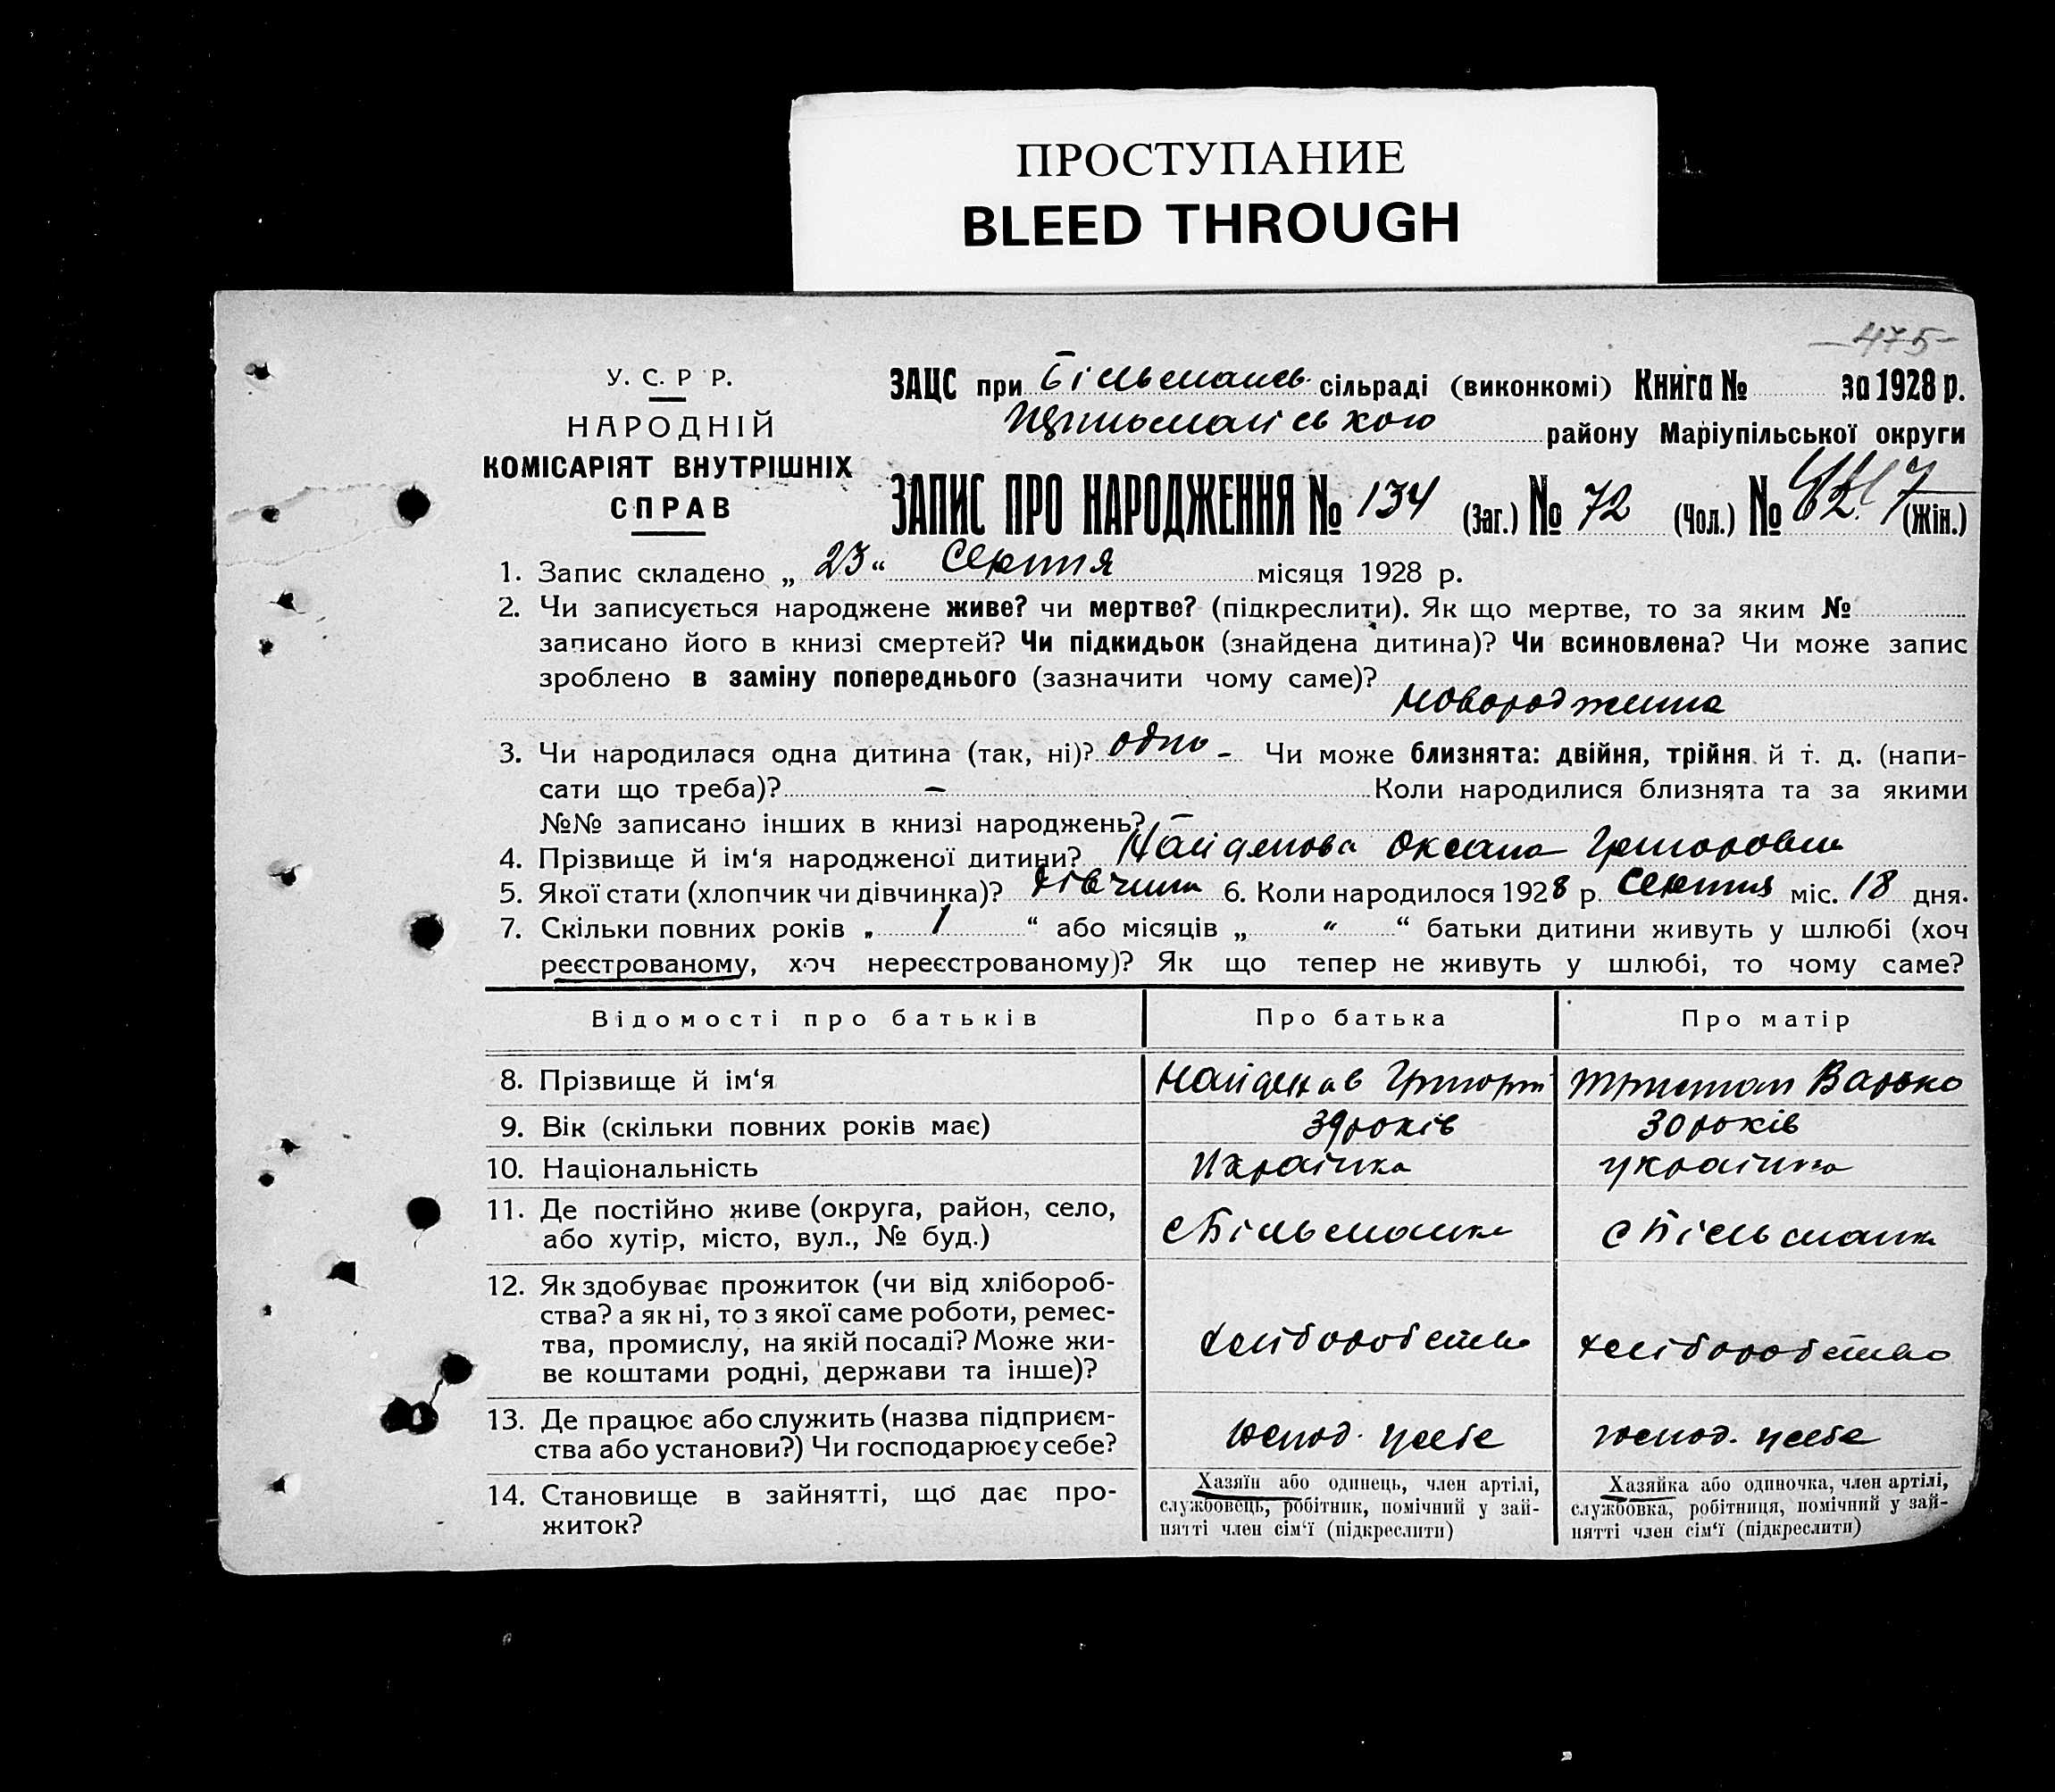 ПРОСТУПАНИЕ
BLEED THROUGH
-475-
У. С. Р Р.
НАРОДНІЙ
КОМІСАРІЯТ ВНУТРІШНІХ
СПРАВ
ЗАЦС при Більманськ. сільраді (виконкомі) Книга № за 1928 р.
району Маріупільської округи
ЗАПИС ПРО НАРОДЖЕННЯ № 134 (Заг.) № 72 (Чол.) № 62 (Жін.)
1. Запис складено „ 23 “ Серпня місяця 1928 р.
2. Чи записується народжене живе? чи мертве? (підкреслити). Як що мертве, то за яким №
записано його в книзі смертей? Чи підкидьок (знайдена дитина)? Чи всиновлена? Чи може запис
зроблено в заміну попереднього (зазначити чому саме)?
Новорожденна
3. Чи народилася одна дитина (так, ні)? одно - Чи може близнята: двійня, трійня й т. д. (напи-
сати що треба)? - Коли народилися близнята та за якими
№№ записано інших в книзі народжень? -
4. Прізвище й ім‘я народженої дитини? Найденова Оксана Григоровна
5. Якої стати (хлопчик чи дівчинка)? дівчина 6. Коли народилося 1928 р. Серпня міс. 18 дня.
7. Скільки повних років „ 1 “ або місяців „ “ “ батьки дитини живуть у шлюбі (хоч
реєстрованому, хоч нереєстрованому)? Як що тепер не живуть у шлюбі, то чому саме?
Відомості про батьків Про батька Про матір
8. Прізвище й ім‘я Найденов Григорій Варька
9. Вік (скільки повних років має) 39 років 30 років
10. Національність Українка українка
11. Де постійно живе (округа, район, село,
або хутір, місто, вул., № буд.) с Більманка с Більманка
12. Як здобуває прожиток (чи від хлібороб-
ства? а як ні, то з якої саме роботи, ремес-
тва, промислу, на якій посаді? Може жи-
ве коштами родні, держави та інше)? хліборобство хліборобство
13. Де працює або служить (назва підприєм-
ства або установи?) Чи господарює у себе? господ. у себе господ. у себе
14. Становище в зайнятті, що дає про-
житок?
Хазяїн або одинець, член артілі,
службовець, робітник, помічний у зай-
нятті член сім‘ї (підкреслити)
Хазяйка або одиночка, член артілі,
службовка, робітниця, помічний у зай-
нятті член сім‘ї (підкреслити)